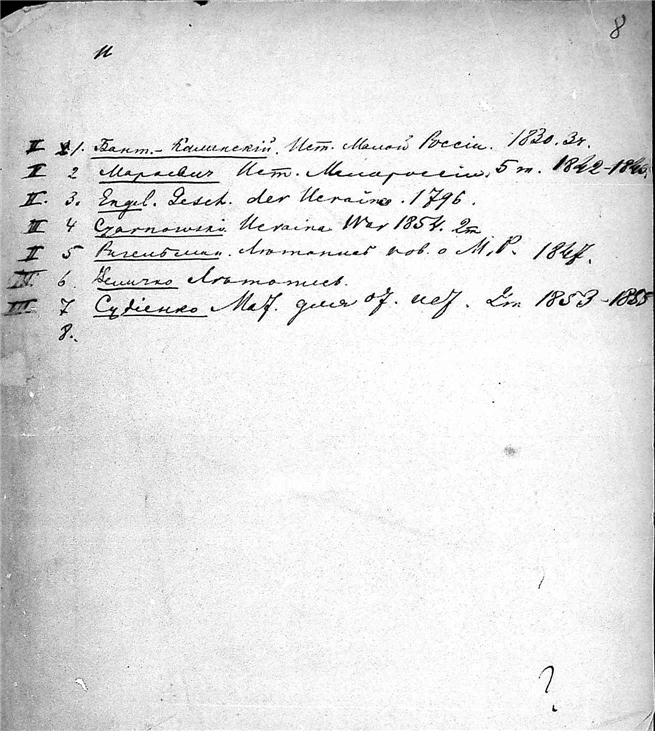 8
II 1. Бант.-Каменскій. Ист. Малой Россіи. 1830. 3ч.
II 2 Маркевич Ист. Малороссіи. 5 т. 1842-
II. 3. Engel. Gesch. der Ucraine. 1796.
III 4 Czarnowski Ucraina War 1854. 2т
II 5 Ригельман. Лѣтопис. пов. о М. Р. 1847.
III. 6. Величко Лѣтопись.
III. 7 Судіенко Мат. для от. ист. 2т 1853-1855
8.
?